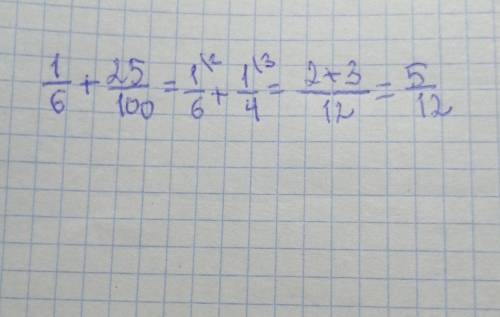 1/6 + 25/100 = 1\2/6 + 1\3/4 = 2+3/12 = 5/12